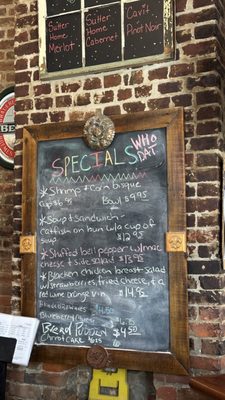 Sutter
Home
Merlot
Sutter
Home
Cabernet
Cavit
Pinot Noir
SPECIALS
WHO
DAT
* Shrimp & Corn bisque
Cup $6.95 Bowl $9.95
* Soup & Sandwich -
Catfish on bun w/a cup of
Soup $12.95
* Stuffed bell pepper w/mac
cheese & side salad $13.95
* Blacken chicken breast salad
w/strawberries, fried cheese, & a
red wine orange vin $14.95
Blueberry
Bread Pudden
Carrot Cake $4.50